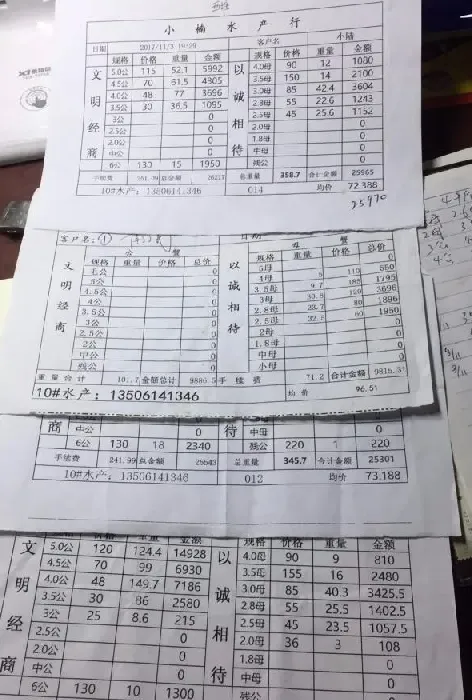 小楠水产行
日期 2017/11/3 19:20 客户名 小陆
规格 价格 重量 金额 规格 价格 重量 金额
5.0公 115 52.1 5992 4.0母 90 12 1080
4.5公 70 61.5 4305 3.5母 150 14 2100
4.0公 48 77 3696 3.0母 85 42.4 3604
3.5公 30 36.5 1095 2.8母 55 22.6 1243
3公 0 2.5母 45 25.6 1152
2.5公 0 2.0母 0
2.0公 0 1.8母 0
中公 0 中母 0
6公 130 15 1950 残公 0
文明经商
以诚相待
手续费 总金额 总重量 358.7 合计金额 25965
10#水产:13506141346 014 均价 72.386
25970
客户名:
公蟹 母蟹
规格 重量 价格 总价 规格 重量 价格 总价
毛公 0 5母 0
5公 0 4母 5 110 550
4.5公 0 3.5母 9.7 185 1795
4公 0 3母
3.5公 0 2.8母
3公 0 2.5母
2.5公 0 2母 0
2公 0 1.8母 0
中公 0 中母 0
残公 0 小母 0
文明经商
以诚相待
重量合计 101.7 金额总计 9886.5 手续费 71.2 合计金额 9815.3
10#水产:13506141346 均价 96.51
商 中公 0 待 中母 0
6公 130 18 2340 残公 220 1 220
手续费 241.99 总金额 25543 总重量 345.7 合计金额 25301
10#水产:13506141346 013 均价 73.188
规格 价格 重量 金额
5.0公 120 124.4 14928 4.0母 90 9 810
4.5公 70 99 6930 3.5母 155 16 2480
4.0公 48 149.7 7186 3.0母 85 40.3 3425.5
3.5公 30 86 2580 2.8母 55 25.5 1402.5
3公 25 8.6 215 2.5母 45 23.5 1057.5
2.5公 0 2.0母 36 3 108
2.0公 0 1.8母 0
中公 0 中母 0
6公 130 10 1300 残公
文明经商
以诚相待